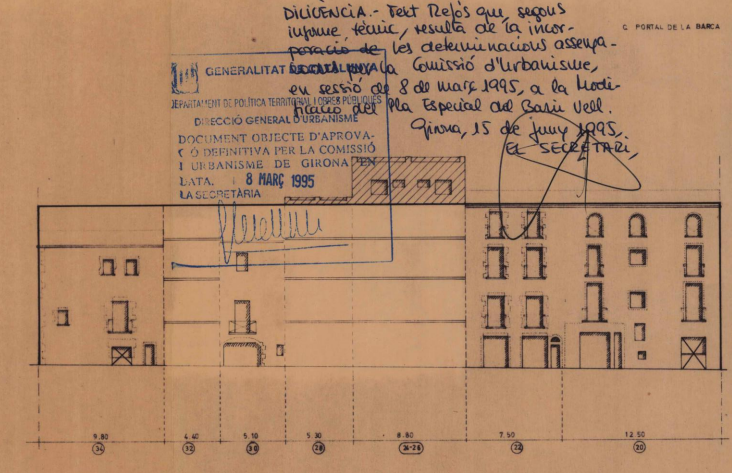 DILIGÈNCIA.- Text Refós que, segons
informe tècnic, resulta de la incor-
poració de les determinacions assenya-
per la Comissió d'Urbanisme,
en sessió de 8 de març 1995, a la Modi-
ficació del Pla Especial del Barri Vell.
Girona, 15 de juny 1995.
EL SECRETARI,
C. PORTAL DE LA BARCA
GENERALITAT DE CATALUNYA
DEPARTAMENT DE POLÍTICA TERRITORIAL I OBRES PÚBLIQUES
DIRECCIÓ GENERAL D'URBANISME
DOCUMENT OBJECTE D'APROVA-
Ó DEFINITIVA PER LA COMISSIÓ
URBANISME DE GIRONA EN
DATA. 8 MARÇ 1995
LA SECRETÀRIA
9.80 4.40 5.10 5.30 8.80 7.50 12.50
34 32 30 28 24-26 22 20